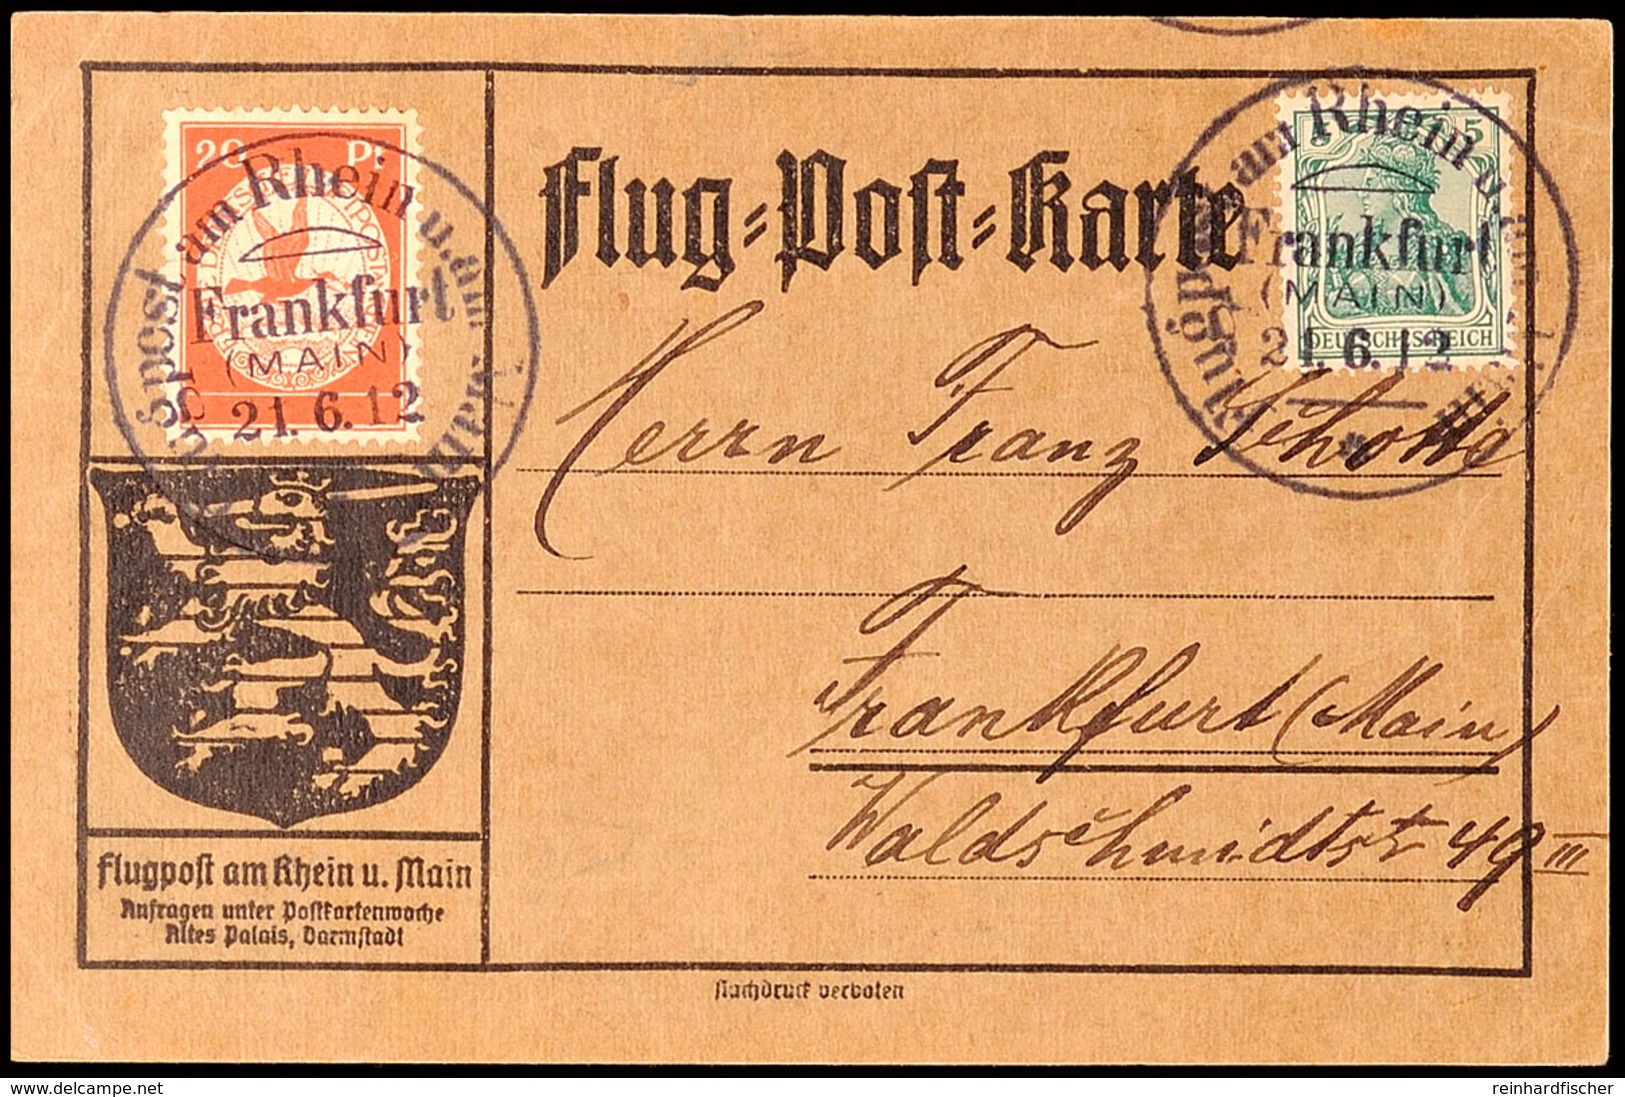 20 Pf
Flugpost am Rhein u. am Main
Frankfurt
(MAIN)
21.6.12
Flug=Post=Karte
5
DEUTSCHES REICH
Flugpost am Rhein u. am Main
Frankfurt
(MAIN)
21.6.12
Herrn Franz Schotte
Frankfurt (Main)
Waldschmidtstr 49 III
Flugpost am Rhein u. Main
Anfragen unter Postkartenwoche
Altes Palais, Darmstadt
Nachdruck verboten
delcampe.net
reinhardfischer